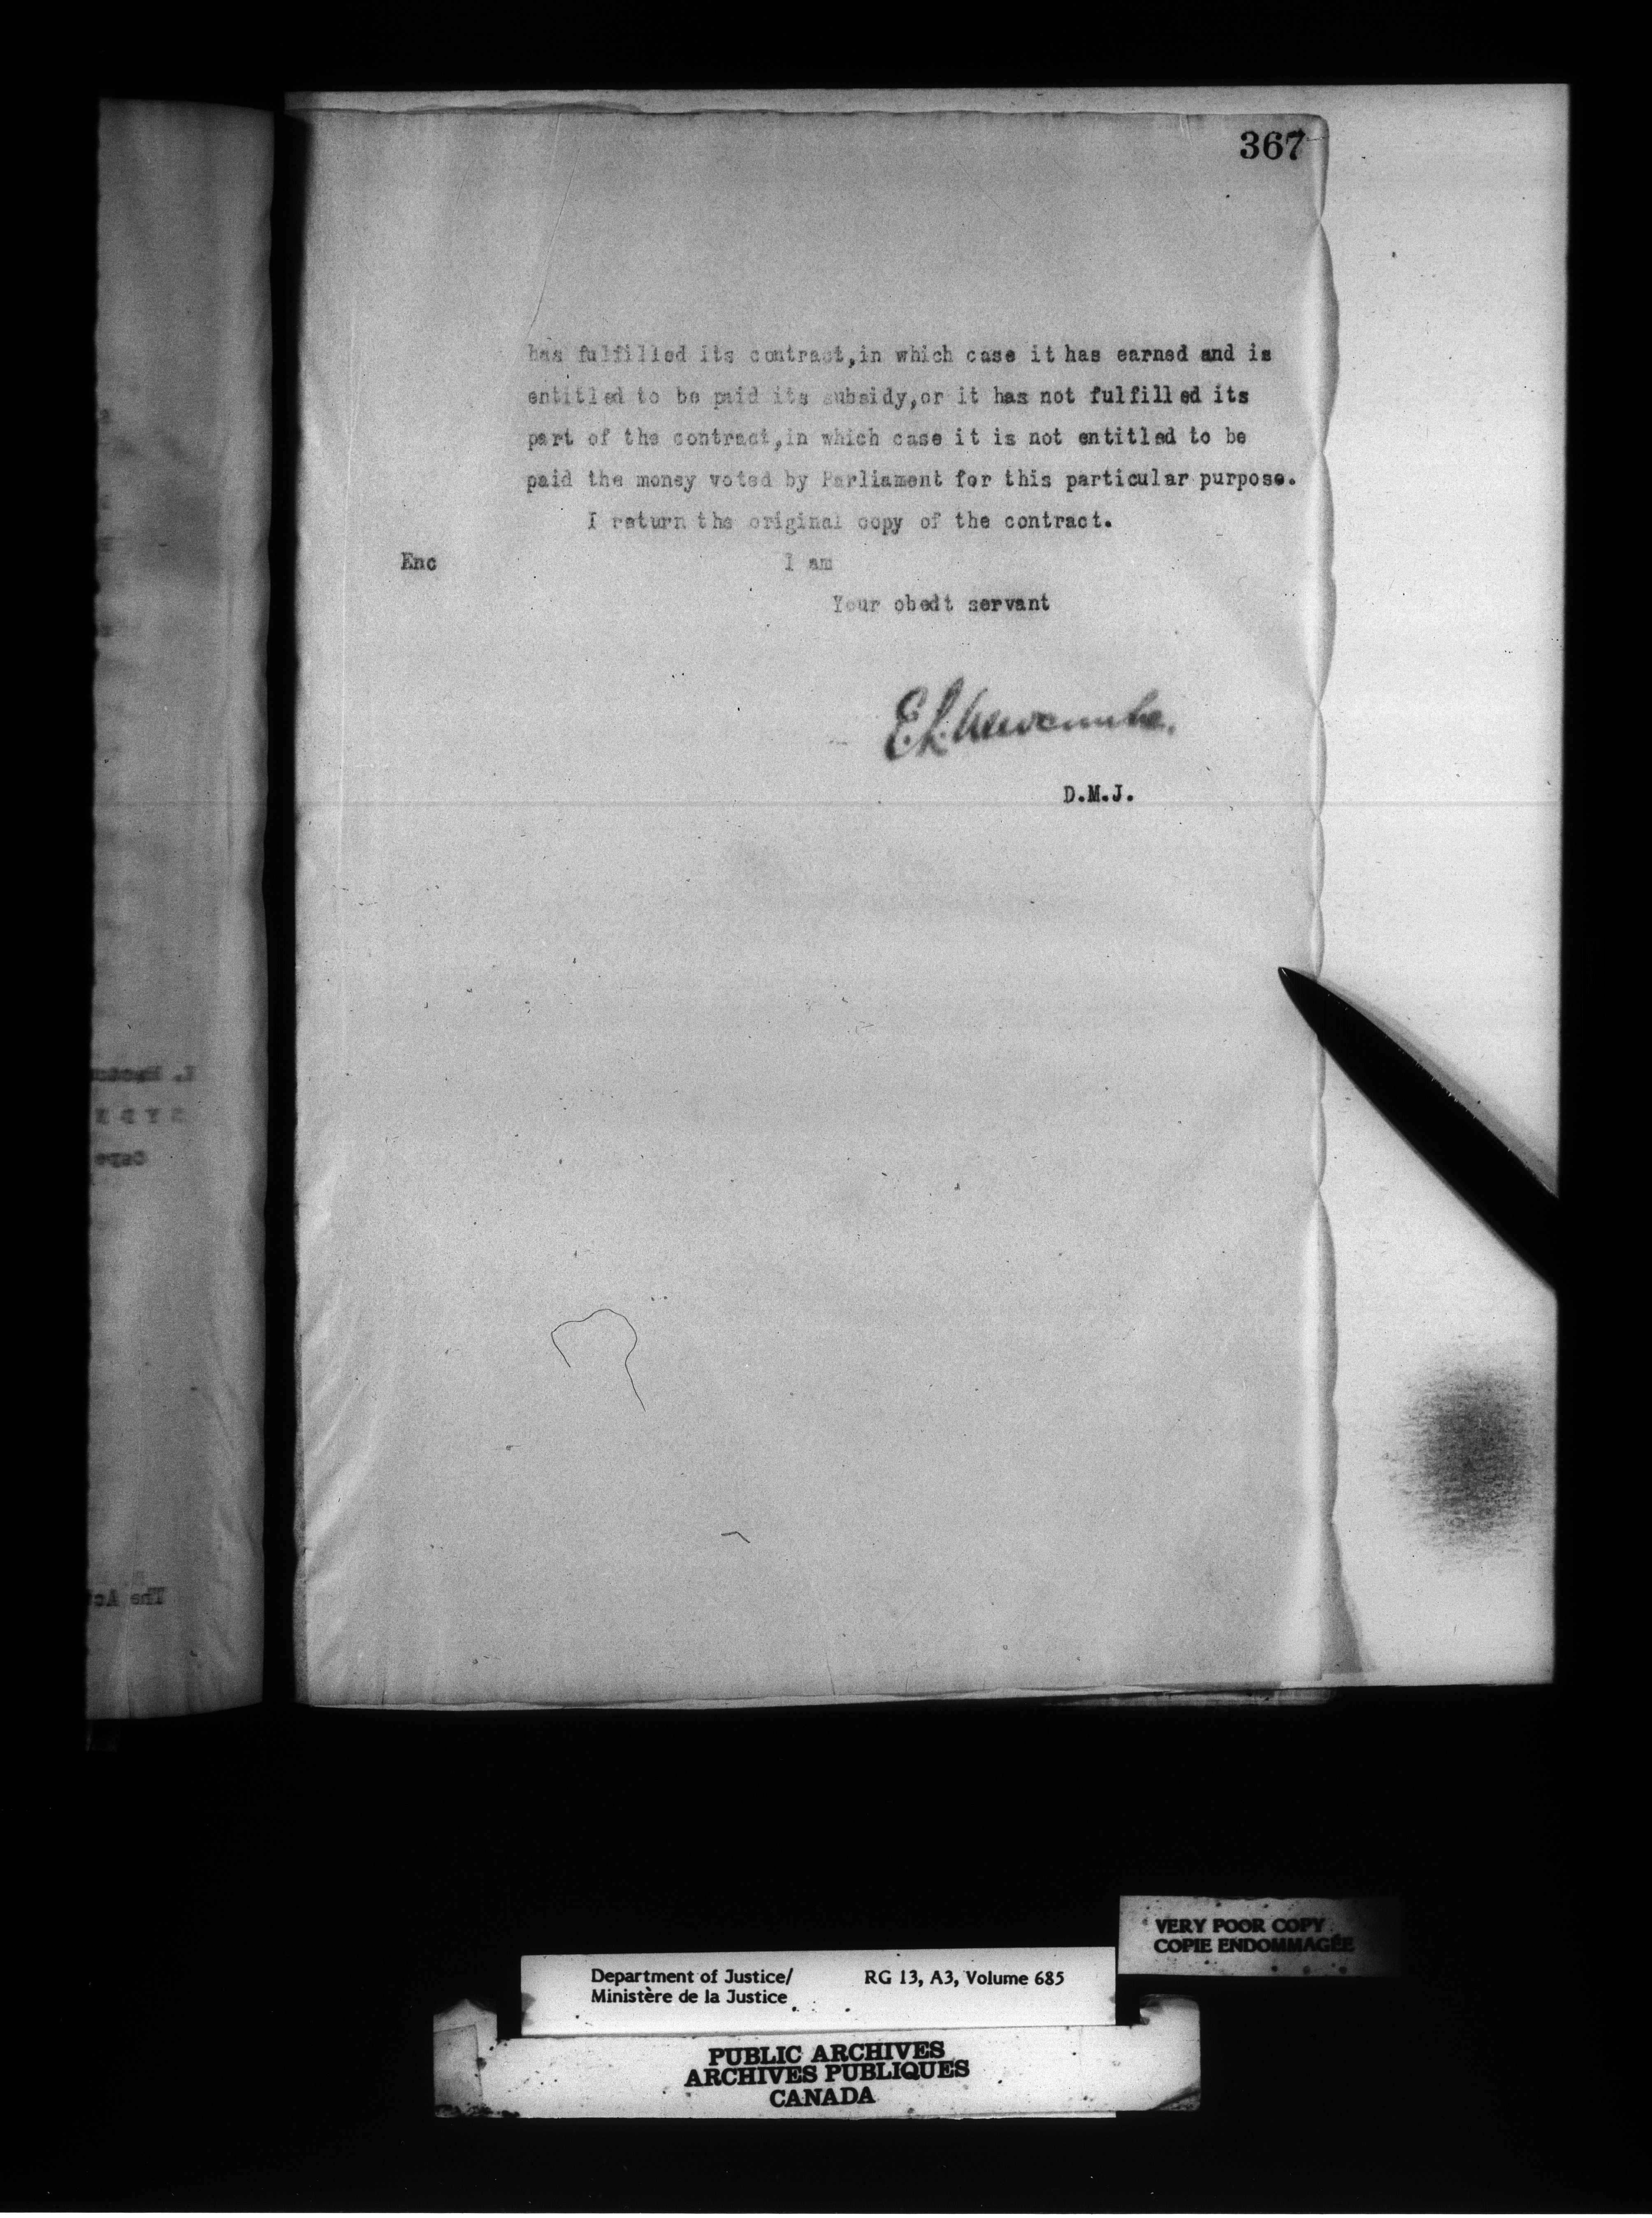 367
has fulfilled its contract,in which case it has earned and is
entitled to be paid its subsidy,or it has not fulfilled its
part of the contract,in which case it is not entitled to be
paid the money voted by Parliament for this particular purpose.
I return the original copy of the contract.
Enc I am
Your obedt servant
E.L.Newcombe.
D.M.J.
VERY POOR COPY
COPIE ENDOMMAGÉE
Department of Justice/ RG 13, A3, Volume 685
Ministère de la Justice
PUBLIC ARCHIVES
ARCHIVES PUBLIQUES
CANADA